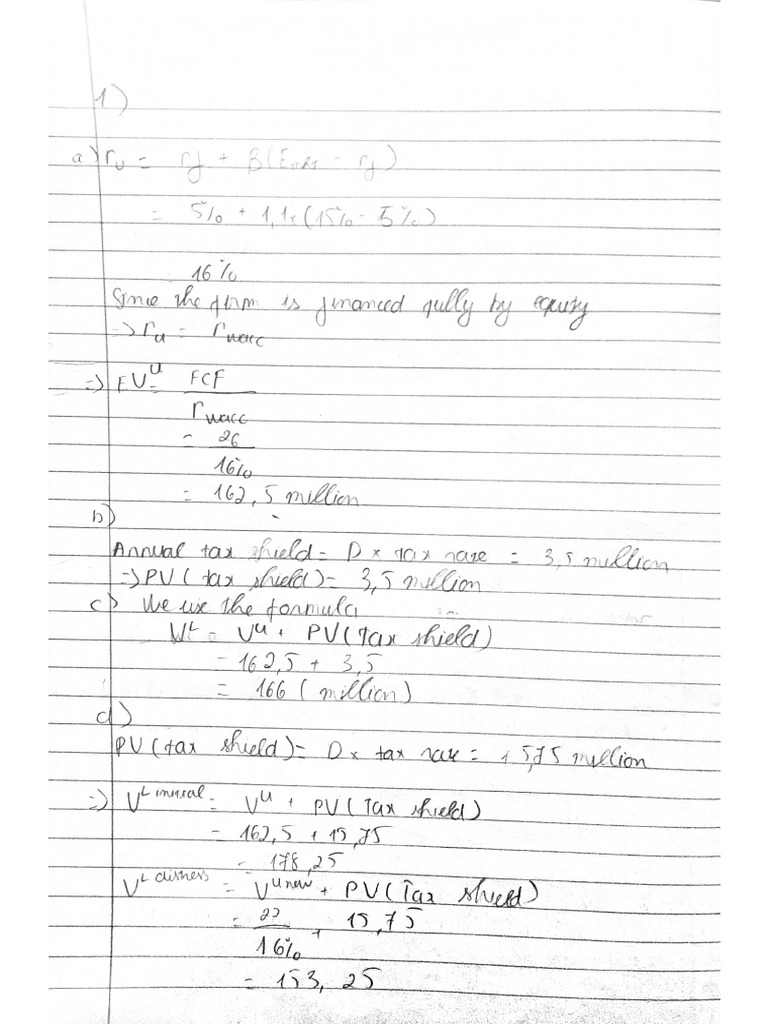 1)
a) ru = rf + β(Emkt - rf)
= 5% + 1,1x(15% - 5%)
16%
Since the firm is financed fully by equity
=> ru = rwacc
=> EV^U = FCF
rwacc
= 26
16%
= 162,5 million
b)
Annual tax shield = D x tax rate = 3,5 million
=> PV( tax shield) = 3,5 million
c) We use the formula
V^L = V^U + PV(Tax shield)
= 162,5 + 3,5
= 166 (million)
d)
PV(tax shield) = D x tax rate = 15,75 million
=> V^L initial = V^U + PV(Tax shield)
= 162,5 + 15,75
= 178,25
V^L distress = V^U new + PV(Tax shield)
= 22 + 15,75
16%
= 153,25